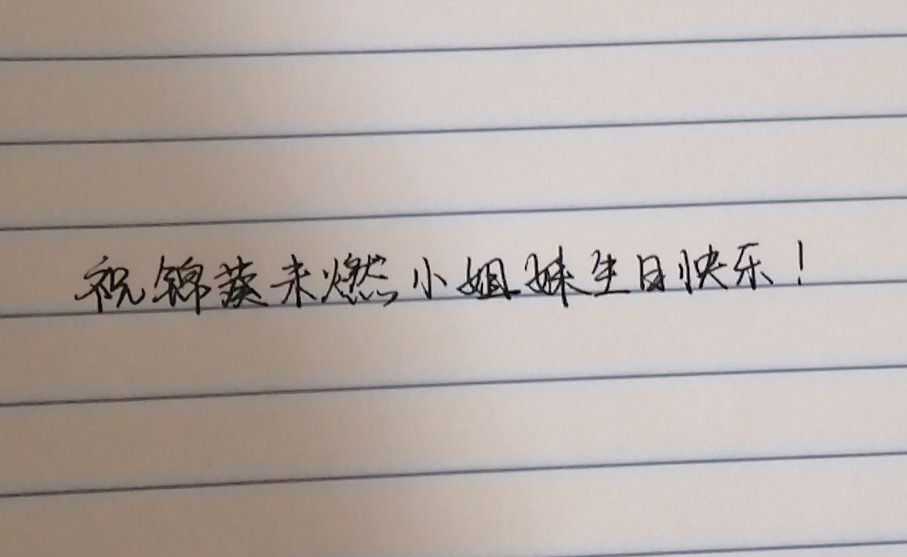 祝锦葵未燃小姐妹生日快乐！